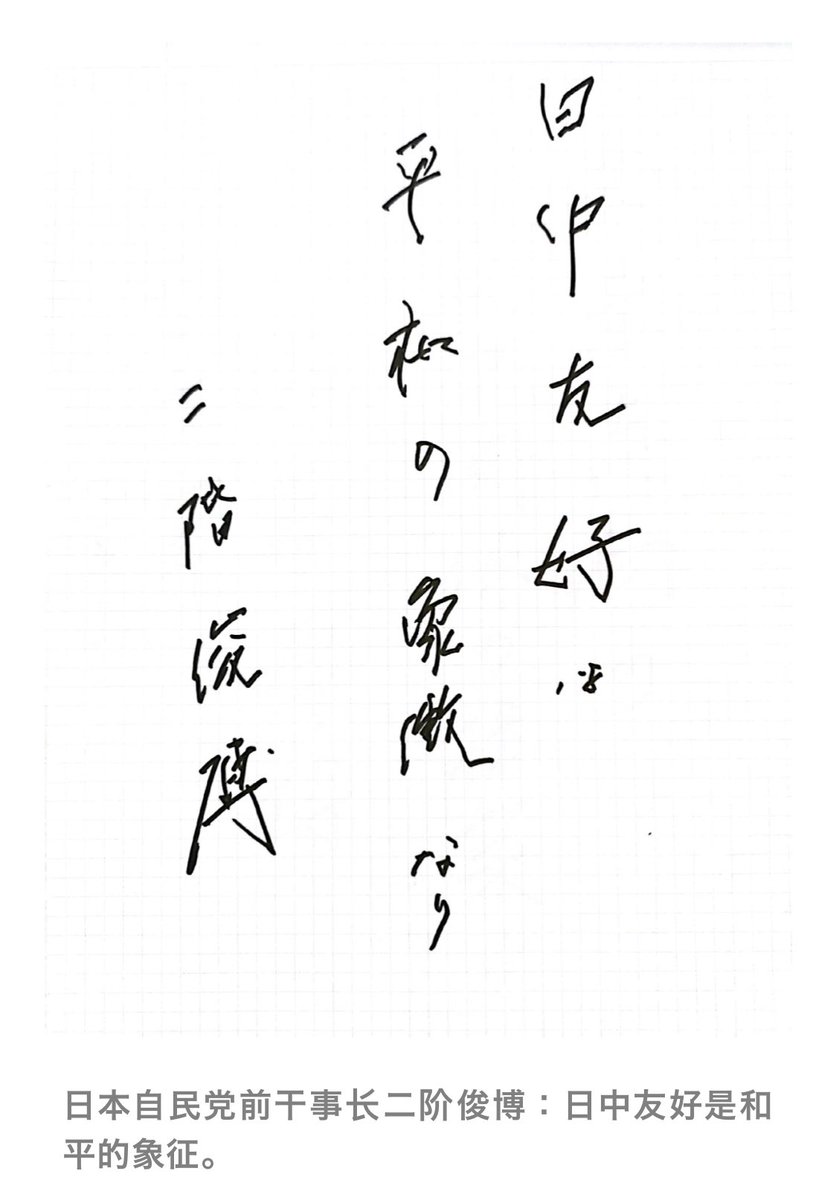 日中友好は
平和の象徴なり
二階俊博
日本自民党前干事长二阶俊博：日中友好是和
平的象征。